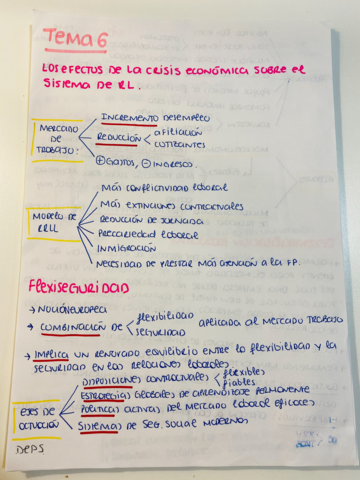 Tema 6
LOS EFECTOS DE LA CRISIS ECONÓMICA SOBRE EL
SISTEMA DE RL.
MERCADO DE TRABAJO:
INCREMENTO DESEMPLEO
REDUCCIÓN
AFILIACIÓN
COTIZANTES
+ GASTOS, - INGRESO.
MODELO DE RRLL
MÁS CONFLICTIVIDAD LABORAL
MÁS EXTINCIONES CONTRACTUALES
REDUCCIÓN DE JORNADA
PRECARIEDAD LABORAL
INMIGRACIÓN
NECESIDAD DE PRESTAR MÁS ATENCIÓN A LA FP.
FLEXISEGURIDAD
→ NOCIÓN EUROPEA
→ COMBINACIÓN DE
flexibilidad
SEGURIDAD
APLICADO AL MERCADO TRABAJO
→ IMPLICA UN RENOVADO EQUILIBRIO ENTRE LO FLEXIBILIDAD Y LA
SEGURIDAD EN LAS RELACIONES LABORALES
EJES DE ACTUACIÓN
DISPOSICIONES CONTRACTUALES
flexibles
fiables
ESTRATEGIAS GLOBALES DE APRENDIZAJE PERMANENTE
POLITICAS ACTIVAS DEL MERCADO LABORAL EFICACES
SISTEMAS DE SEG. SOCIAL MODERNOS
DEPS